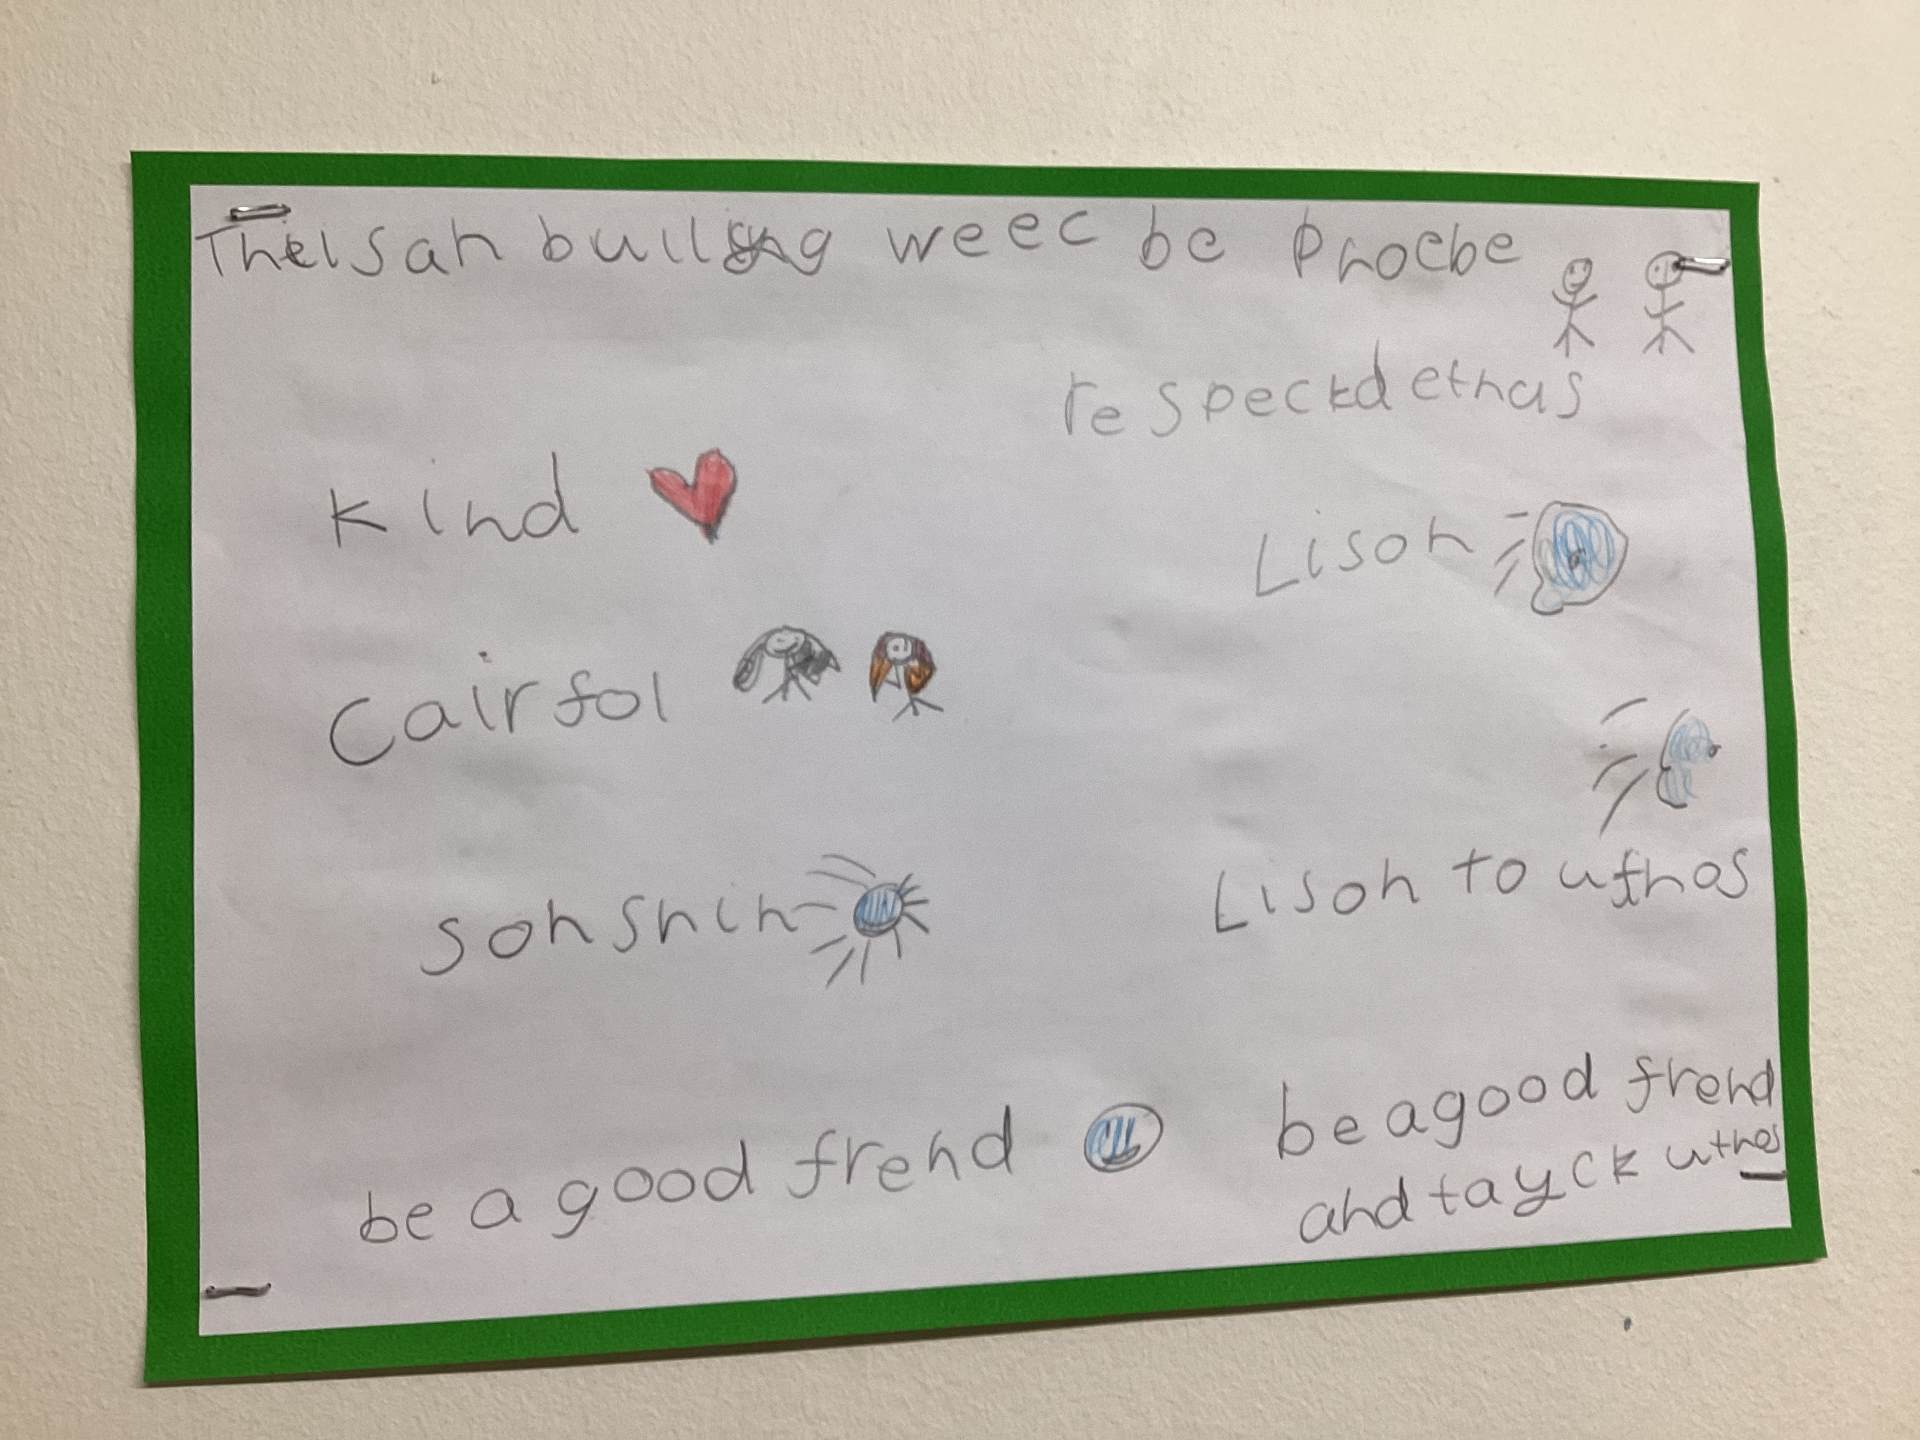 TheIsan bullyng weec be Phoebe
respeckd ethus
Kind
Lison
Cairfol
sonshin
Lison to uthos
be a good frend
be a good frend
and tayck uthos